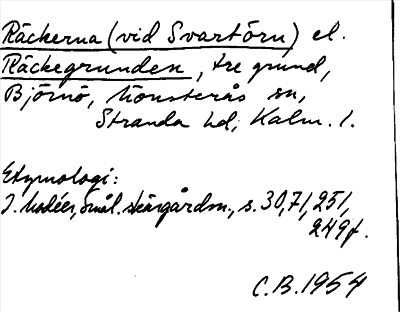 Räckerna (vid Svartörn) el.
Räckegrunden, tre grund,
Björnö, Mönsterås sn,
Stranda hd, Kalm. l.
Etymologi:
I. Modéer, Smål. skärgårdsn., s. 30, 71, 251,
249f.
C.B. 1954